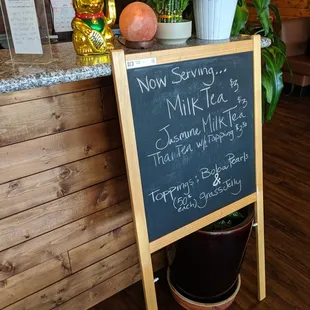 Now Serving...
Milk Tea $3
Jasmine Milk Tea $3
Thai Tea w/ Topping $3
Toppings: Boba Pearls
&
(50¢ each) grass Jelly